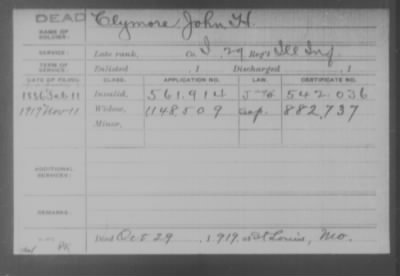 DEAD
NAME OF SOLDIER: Clymore, John H.
SERVICE: Late rank, Co. I, 29 Reg't Ill Inf.
TERM OF SERVICE: Enlisted , 1 Discharged , 1
DATE OF FILING. CLASS. APPLICATION NO. LAW. CERTIFICATE NO.
1886 Feb 11 Invalid, 561.914 542.036
1919 Nov 11 Widow, 1148.509 882.737
Minor,
ADDITIONAL SERVICES:
REMARKS:
Died Oct 29, 1919, at St Louis, Mo.